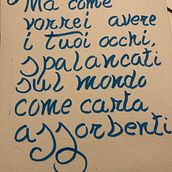 Ma come
vorrei avere
i tuoi occhi,
spalancati
sul mondo
come carta
assorbenti